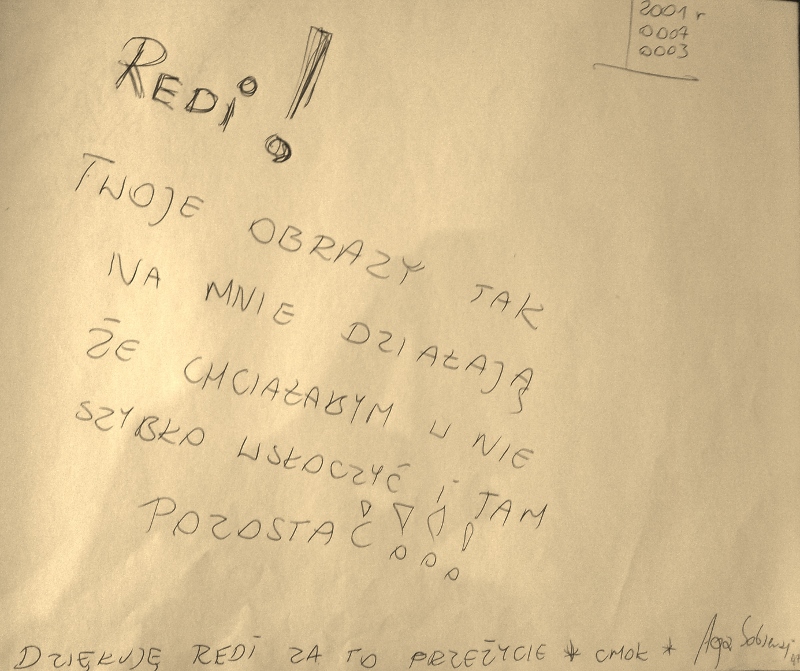 2001 r
0007
0003
REDi!
TWOJE OBRAZY TAK
NA MNIE DZIAŁAJĄ
ŻE CHCIAŁABYM W NIE
SZYBKO WSKOCZYĆ i TAM
POZOSTAĆ!!!!
DZIĘKUJĘ REDi ZA TO PRZEŻYCIE * CMOK *